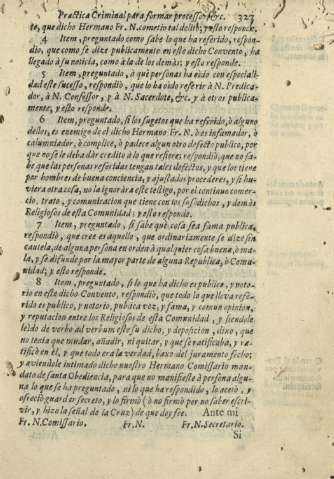 Practica Criminal para formar processos, &c. 327
te, que dicho Hermano Fr. N. cometio tal delito; y esto responde.
4 Item, preguntado como sabe lo que ha referido, respon-
dio, que como se dize publicamente en este dicho Convento, ha
llegado à su noticia, como à la de los demàs; y esto responde.
5 Item, preguntado, à què personas ha oido con especiali-
dad este sucesso, respondiò, que lo ha oido referir à N. Predica-
dor, à N. Confessor, y à N. Sacerdote, &c. y à otros publica-
mente, y esto responde.
6 Item, preguntado, si los sugetos que ha referido, ò alguno
dellos, es enemigo de el dicho Hermano Fr. N. ò es infamador, ò
calumniador, ò complice, ò padece algun otro defecto publico, por
que no se le deba dàr credito à lo que refiere; respondiò, que no sa-
be que las personas referidas tengan tales defectos, y que los tiene
por hombres de buena conciencia, y ajustados procederes, y si hu-
viera otra cosa, no la ignoràra este testigo, por el continuo comer-
cio, trato, y comunicacion que tiene con los susodichos, y demàs
Religiosos de esta Comunidad; y esto responde.
7 Item, preguntado, si sabe què cosa sea fama publica,
respondiò, que cree es aquello, que ordinariamente se dize sin
cautela, de alguna persona en orden à qualquier cosa buena, ò ma-
la, y se difunde por la mayor parte de alguna Republica, ò Comu-
nidad; y esto responde.
8 Item, preguntado, si lo que ha dicho es publico, y noto-
rio en este dicho Convento, respondiò, que todo lo que lleva refe-
rido es publico, y notorio, publica voz, y fama, y comun opinion,
y reputacion entre los Religiosos de esta Comunidad; y siendole
leìdo de verbo ad verbum este su dicho, y deposicion, dixo, que
no tenia que mudar, añadir, ni quitar, y que se ratificaba, y ra-
tificò en èl, y que todo era la verdad, baxo del juramento fecho;
y aviendole intimado dicho nuestro Hermano Comissario man-
dato de santa Obediencia, para que no manifieste à persona algu-
na lo que se ha preguntado, ni lo que ha respondido, lo acetò, y
ofreciò guardar secreto, y lo firmò (ò no firmò por no saber escri-
vir, y hizo la señal de la Cruz) de que doy fee. Ante mi
Fr. N. Comissario. Fr. N. Fr. N. Secretario.
Si